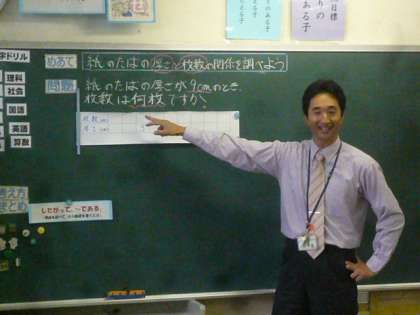 目標
りの
ある子
のある子
ある子
字ドリル
めあて
紙のたばの厚さと枚数の関係を調べよう
理科
社会
問題
紙のたばの厚さが9cmのとき、
枚数は何枚ですか？
国語
枚数(枚)
厚さ(cm)
英語
算数
まとめ
したがって、～である。